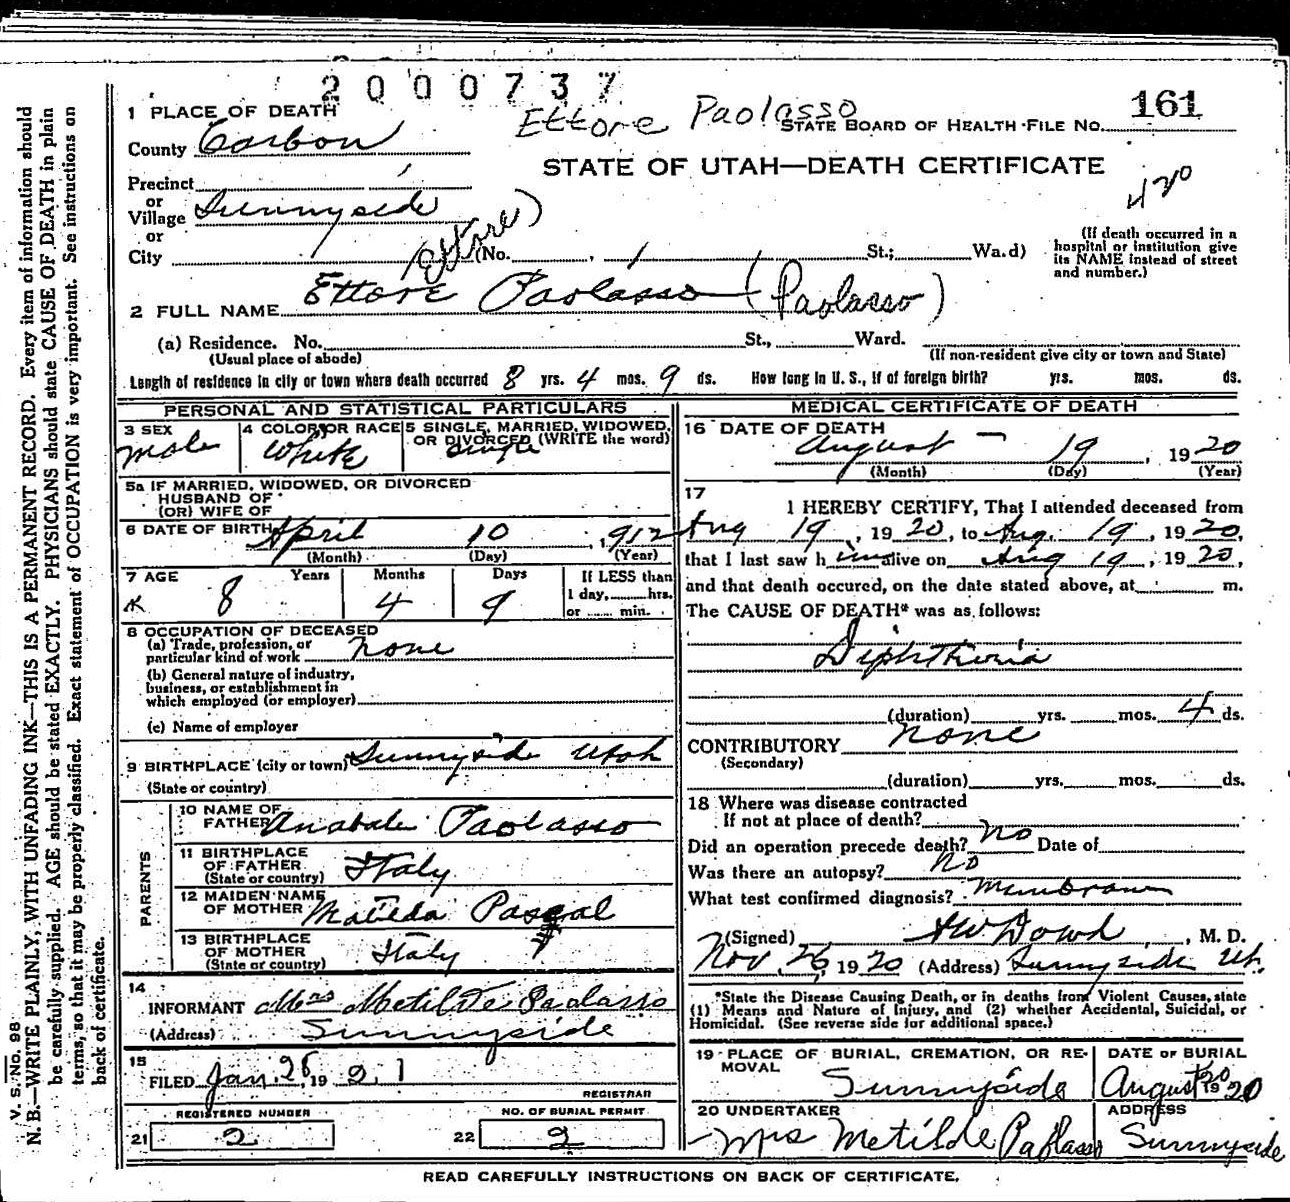 2000737
Ettore Paolasso
161
1 PLACE OF DEATH
STATE BOARD OF HEALTH-FILE No.
County Carbon
STATE OF UTAH—DEATH CERTIFICATE
Precinct
420
or
Village Sunnyside
or
City
(Ettore)
(No. , St.; Wa.d)
(If death occurred in a
hospital or institution give
its NAME instead of street
and number.)
2 FULL NAME Ettore Paolasso (Paolasso)
(a) Residence. No. St., Ward.
(Usual place of abode)
(If non-resident give city or town and State)
Length of residence in city or town where death occurred 8 yrs. 4 mos. 9 ds. How long in U. S., if of foreign birth? yrs. mos. ds.
PERSONAL AND STATISTICAL PARTICULARS
3 SEX
male
4 COLOR OR RACE
White
5 SINGLE, MARRIED, WIDOWED,
OR DIVORCED (WRITE the word)
single
5a IF MARRIED, WIDOWED, OR DIVORCED
HUSBAND OF
(OR) WIFE OF
6 DATE OF BIRTH April 10, 1912
(Month) (Day) (Year)
7 AGE Years Months Days
8 4 9
If LESS than
1 day, hrs.
or min.
8 OCCUPATION OF DECEASED
(a) Trade, profession, or
particular kind of work none
(b) General nature of industry,
business, or establishment in
which employed (or employer)
(c) Name of employer
9 BIRTHPLACE (city or town) Sunnyside Utah
(State or country)
PARENTS
10 NAME OF
FATHER Anabale Paolasso
11 BIRTHPLACE
OF FATHER
(State or country) Italy
12 MAIDEN NAME
OF MOTHER Matilda Pascal
13 BIRTHPLACE
OF MOTHER
(State or country) Italy
14
INFORMANT Mrs Metilde Paolasso
(Address) Sunnyside
15
FILED Jan. 28, 1921
REGISTRAR
REGISTERED NUMBER
21 2
NO. OF BURIAL PERMIT
22 2
MEDICAL CERTIFICATE OF DEATH
16 DATE OF DEATH
August - 19, 1920
(Month) (Day) (Year)
17
I HEREBY CERTIFY, That I attended deceased from
Aug 19, 1920, to Aug. 19, 1920,
that I last saw h im alive on Aug 19, 1920,
and that death occured, on the date stated above, at m.
The CAUSE OF DEATH* was as follows:
Diphtheria
(duration) yrs. mos. 4 ds.
CONTRIBUTORY none
(Secondary)
(duration) yrs. mos. ds.
18 Where was disease contracted
If not at place of death?
Did an operation precede death? no Date of
Was there an autopsy? No
What test confirmed diagnosis? Membrane
(Signed) AW Dowd, M. D.
Nov. 26, 1920 (Address) Sunnyside Ut.
*State the Disease Causing Death, or in deaths from Violent Causes, state
(1) Means and Nature of Injury, and (2) whether Accidental, Suicidal, or
Homicidal. (See reverse side for additional space.)
19 PLACE OF BURIAL, CREMATION, OR RE-
MOVAL
Sunnyside
DATE OF BURIAL
August 20 1920
20 UNDERTAKER
Mrs Metilde Paolasso
ADDRESS
Sunnyside
READ CAREFULLY INSTRUCTIONS ON BACK OF CERTIFICATE.
V. S. No. 98
N. B.—WRITE PLAINLY, WITH UNFADING INK—THIS IS A PERMANENT RECORD. Every item of information should
be carefully supplied. AGE should be stated EXACTLY. PHYSICIANS should state CAUSE OF DEATH in plain
terms, so that it may be properly classified. Exact statement of OCCUPATION is very important. See instructions on
back of certificate.